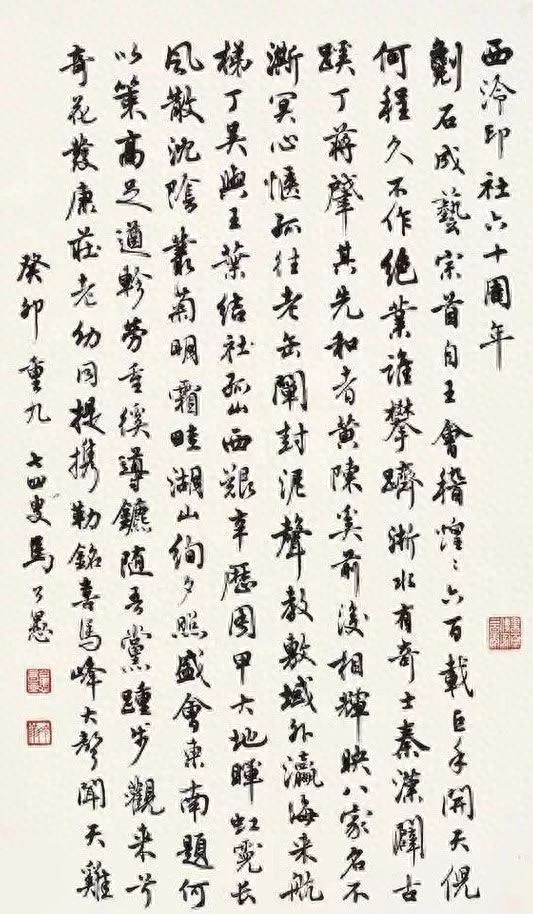 西泠印社六十周年
劖石成藝宗首自王會稽煌〻六百載巨手開天倪
何程久不作絕業誰攀躋浙水有奇士秦漢闢古
蹊丁蔣肇其先和者黃陳奚前後相輝映八家名不
澌冥心愜孤往老缶闡封泥聲教敷域外瀛海來航
梯丁吳與王葉結社孤山西艱辛歷周甲大地暉虹霓長
風散沈陰叢菊明霜畦湖山絢夕照盛會東南題何
以策高足遒軫勞重徯導鑣隨吾黨踵步觀來兮
奇花發康莊老幼同提攜勒銘喜馬峰大聲聞天雞
癸卯重九 七四叟馬公愚